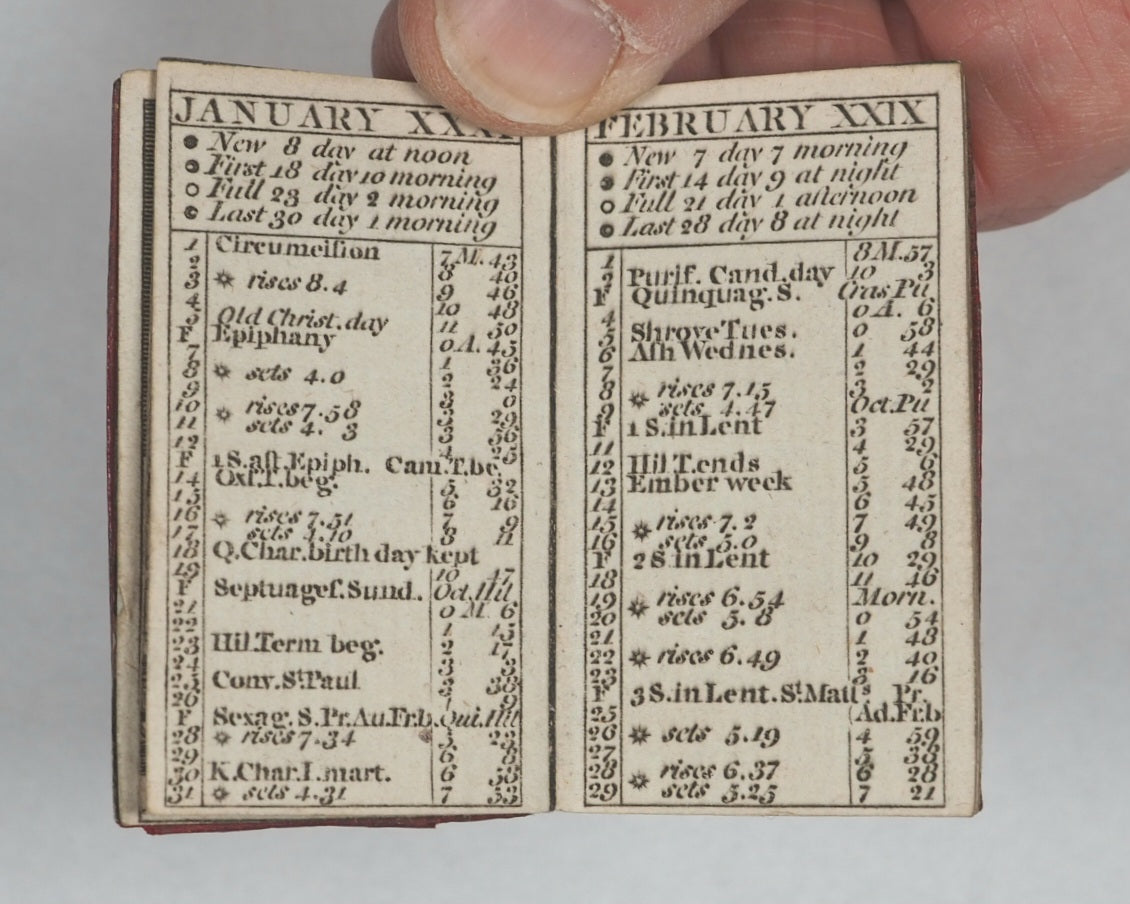 JANUARY XXXI
New 8 day at noon
First 18 day 10 morning
Full 23 day 2 morning
Last 30 day 1 morning
1 Circumciſion 7 M. 43
2 8 40
3 rises 8.4 9 46
4 10 48
5 Old Chriſt. day 11 50
F Epiphany 0 A. 45
7 1 36
8 sets 4.0 2 24
9 3 0
10 rises 7.58 3 29
11 sets 4. 3 3 56
12 4 25
F 1 S. aft. Epiph. Cam. T. be.
14 Oxf. T. beg. 5 32
15 6 16
16 rises 7.51 7 9
17 sets 4.10 8 11
18 Q. Char. birth day kept
19 10 47
F Septuageſ. Sund. Oct. Hil
21 0 M. 6
22 1 15
23 Hil. Term beg. 2 17
24 3 3
25 Conv. St. Paul 3 38
26 9
F Sexag. S. Pr. Au. Fr. b. Qui. Hil
28 rises 7.34 5 23
29 6 8
30 K. Char. I. mart. 6 53
31 sets 4.31 7 53
FEBRUARY XXIX
New 7 day 7 morning
First 14 day 9 at night
Full 21 day 1 afternoon
Last 28 day 8 at night
1 8 M. 57
2 Purif. Cand. day 10 3
F Quinquag. S. Cras Pu
4 0 A. 6
5 Shrove Tues. 0 58
6 Aſh Wednes. 1 44
7 2 29
8 rises 7.15 3 2
9 sets 4.47 Oct. Pu
F 1 S. in Lent 3 57
11 4 29
12 Hil T. ends 5 6
13 Ember week 5 48
14 6 45
15 rises 7.2 7 49
16 sets 5.0 9 8
F 2 S in Lent 10 29
18 11 46
19 rises 6.54 Morn.
20 sets 5. 8 0 54
21 1 48
22 rises 6.49 2 40
23 3 16
F 3 S. in Lent. St. Matt s Pr.
25 Ad. Fr. b
26 sets 5.19 4 59
27 5 38
28 rises 6.37 6 28
29 sets 5.25 7 21